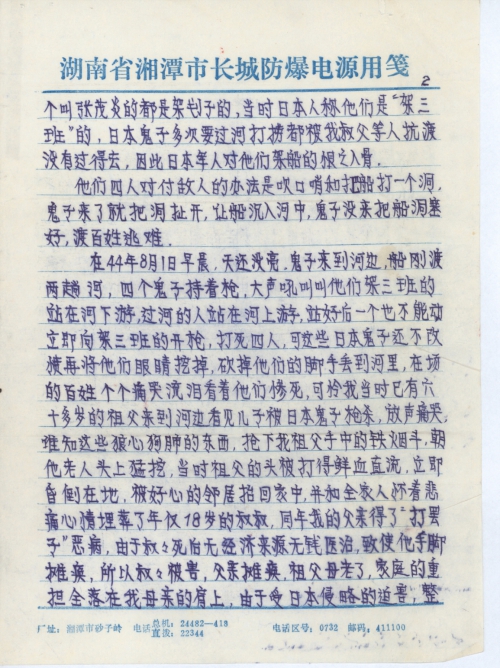 湖南省湘潭市长城防爆电源用笺
2
个叫张茂炎的都是架划子的，当时日本人称他们是“架三
班”的，日本鬼子多次要过河打捞都被我叔父等人抗渡
没有过得去，因此日本军人对他们架船的恨之入骨．
他们四人对付敌人的办法是吹口哨和把船打一个洞，
鬼子来了就把洞扯开，让船沉入河中，鬼子没来把船洞塞
好，渡百姓逃难．
在44年8月1日早晨．天还没亮．鬼子来到河边，船刚渡
两趟河，四个鬼子持着枪，大声吼叫叫他们架三班的
站在河下游，过河的人站在河上游，站好后一个也不能动
立即向架三班的开枪，打死四人，可这些日本鬼子还不改
再将他们眼睛挖掉，砍掉他们的脚手丢到河里，在场
的百姓个个痛哭流泪看着他们惨死，可怜我当时已有六
十多岁的祖父来到河边看见儿子被日本鬼子枪杀，放声痛哭，
谁知这些狼心狗肺的东西，抢下我祖父手中的铁烟斗，朝
他老人头上猛挖，当时祖父的头被打得鲜血直流，立即
昏倒在地，被好心的邻居抬回家中，并和全家人怀着悲
痛心情埋葬了年仅18岁的叔叔，同年我的父亲得了“打罢
子”恶病，由于叔叔死后无经济来源无钱医治，致使他手脚
摊痪，所以叔叔被害，父亲摊痪，祖父母老了，家庭的重
担全落在我母亲的肩上，由于受日本侵略的迫害，整
厂址：湘潭市砂子岭 电话总机：24482—418 直拨：22344 电话区号：0732 邮码：411100